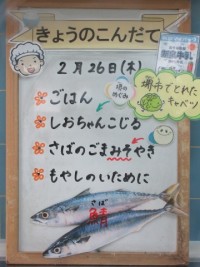 きょうのこんだて
2月26日(木)
堺市でとれた
キャベツ
ごはん
しおちゃんこじる
さばのごまみそやき
もやしのいために
さば
鯖